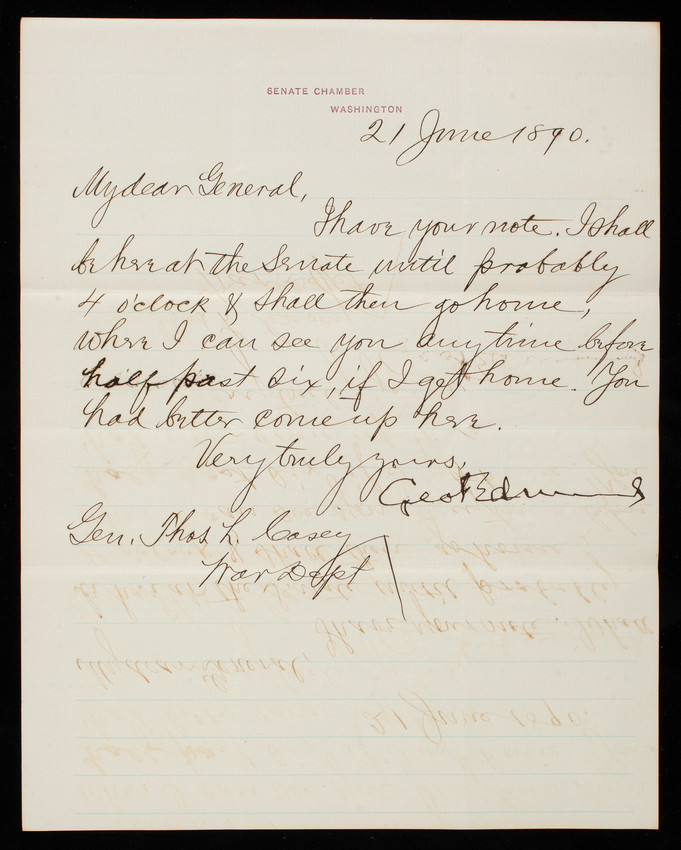 SENATE CHAMBER
WASHINGTON
21 June 1890.
My dear General,
I have your note. I shall
be here at the Senate until probably
4 o'clock & shall then go home,
where I can see you anytime before
half past six, if I get home. You
had better come up here.
Very truly yours,
Geo F Edmunds
Gen. Thos. L. Casey
War Dept